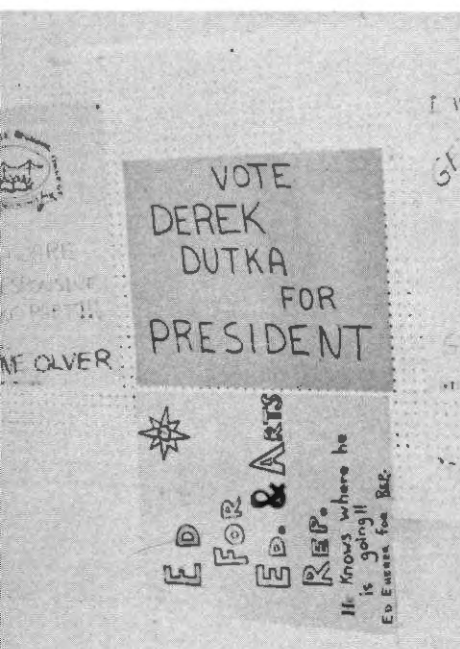 VOTE
DEREK
DUTKA
FOR
PRESIDENT
OLVER
ED
FOR
ED. & ARTS
REP.
He Knows where he
is going!!
ED FOR REP.